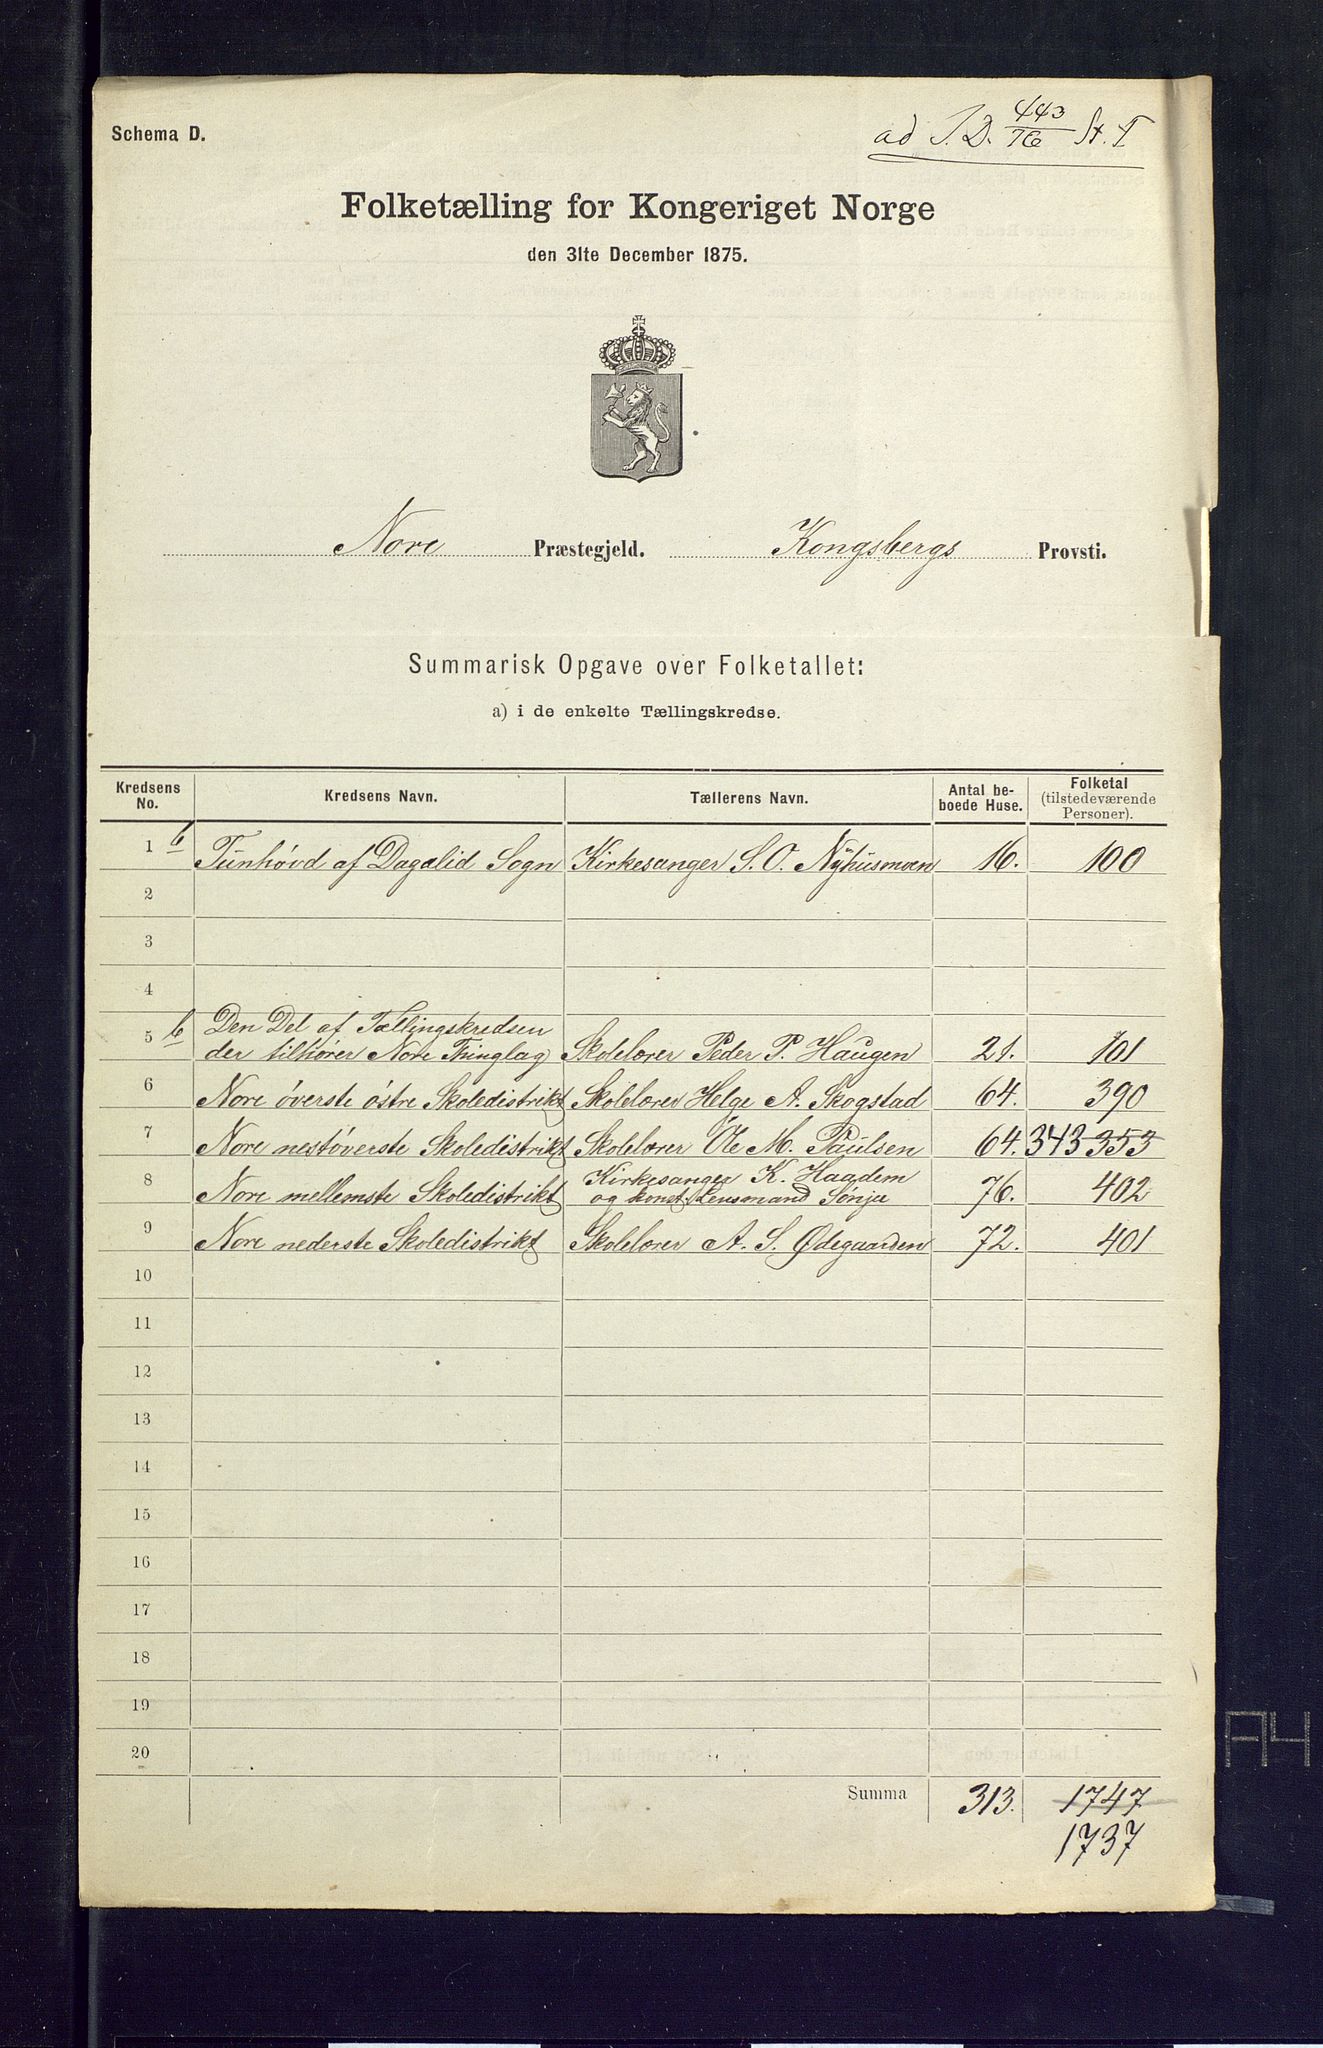 Schema D.
ad J.D. 443/76 St. T
Folketælling for Kongeriget Norge
den 31te December 1875.
Nore Præstegjeld. Kongsbergs Provsti.
Summarisk Opgave over Folketallet:
a) i de enkelte Tællingskredse.
Kredsens No. Kredsens Navn. Tællerens Navn. Antal beboede Huse. Folketal (tilstedeværende Personer).
1 b Tunhövd af Dagalid Sogn Kirkesanger S. O. Nÿhusmoen 16. 100
2
3
4
5 b Den Del af Tællingskredsen
der tilhører Nore Thinglag Skolelærer Peder P. Haugen 21. 101
6 Nore överste östre Skoledistrikt Skolelærer Helge A. Skogstad 64. 390
7 Nore nestöverste Skoledistrikt Skolelærer Ole M. Paulsen 64. 343 353
8 Nore mellemste Skoledistrikt Kirkesanger K. Haadem
og konst. Lensmand Sønju 76. 402
9 Nore nederste Skoledistrikt Skolelærer A. S. Ødegaarden 72. 401
10
11
12
13
14
15
16
17
18
19
20
Summa 313. 1747
1737
A4